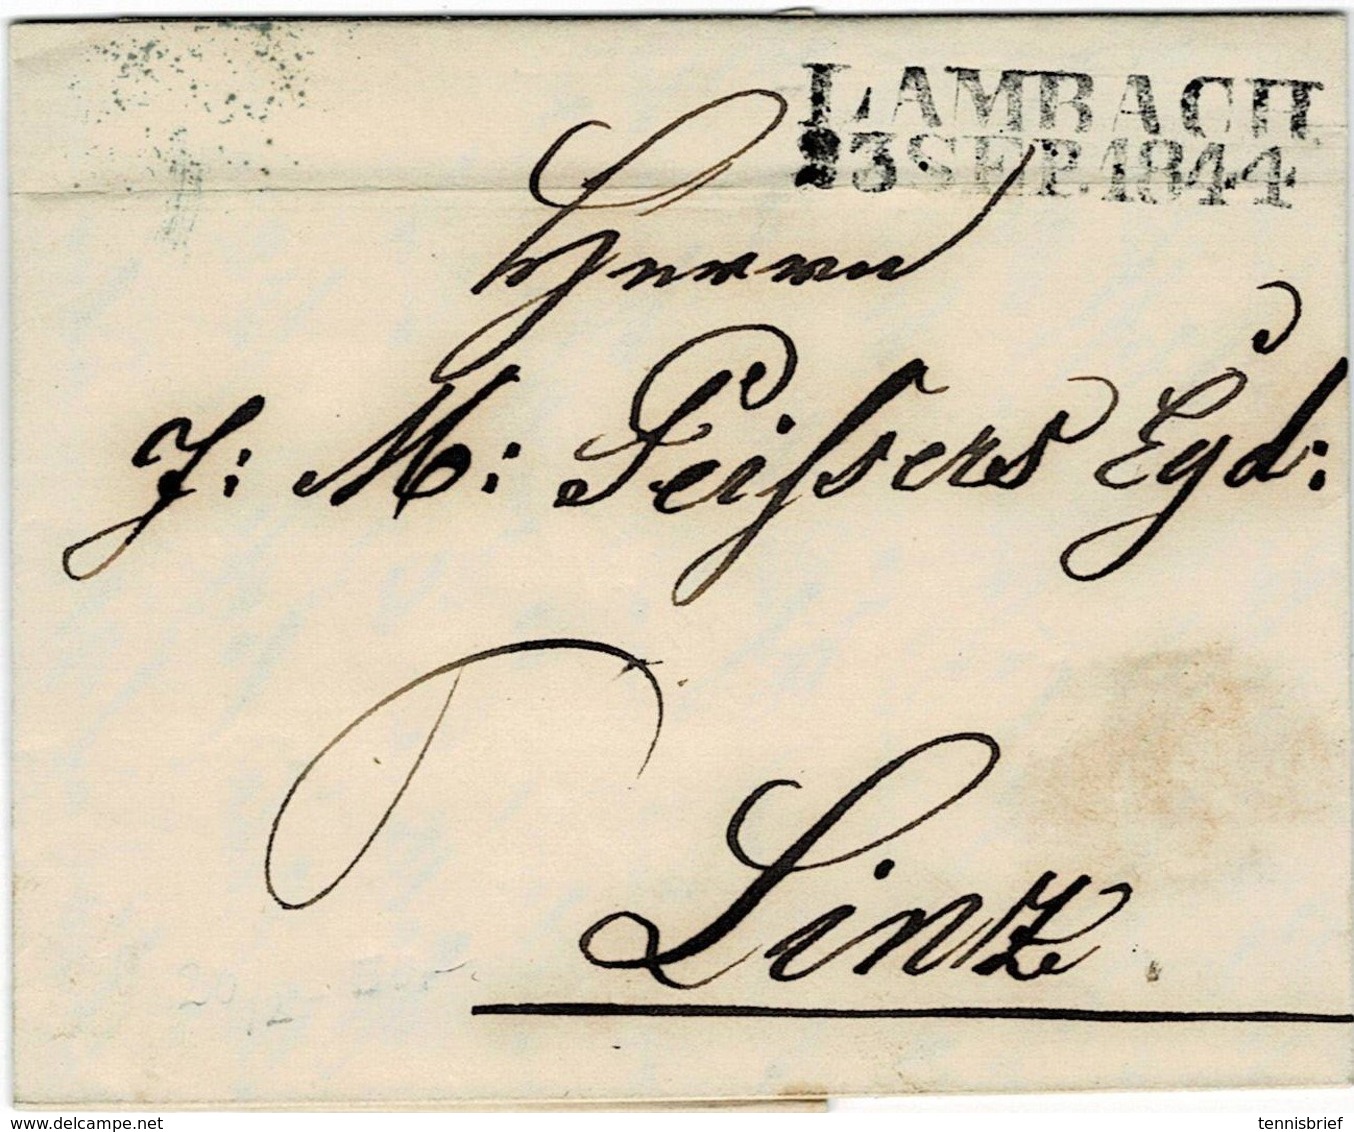 LAMBACH
23 SEP. 1844
Herrn
J: M: Peißers Eyd:
Linz
www.delcampe.net
tennisbrief